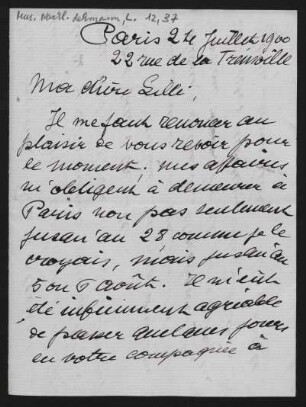 Mus. Nachl. Lehmann, L. 12, 37
Paris 24 Juillet 1900
22 rue de la Trémoille
Ma chère Lilli,
Il me faut renoncer au
plaisir de vous revoir pour
le moment; mes affaires
m'obligent à demeurer à
Paris non pas seulement
jusqu'au 28 comme je le
croyais, mais jusqu'au
5 ou 6 août. Il m'eût
été infiniment agréable
de passer quelques jours
en votre compagnie à